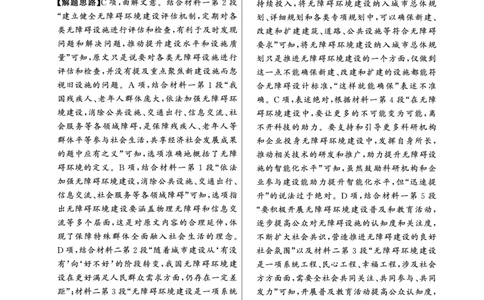 【解题思路】C项,曲解文意。结合材料一第2段
“建立健全无障碍环境建设评估机制,定期对各
类无障碍设施进行评估和检查,有利于及时发现
问题和解决问题,推动提升建设水平和设施质
量”可知,原文只是说要对各类无障碍设施进行
评估和检查,并没有提及重点聚焦新建设施而忽
视旧设施的问题。A项,结合材料一第1段“我
国残疾人、老年人群体庞大,依法加强无障碍环
境建设,消除公共设施、交通出行、信息交流、社
会服务等各领域障碍,是保障残疾人、老年人等
群体平等参与社会生活,共享经济社会发展成果
的题中应有之义”可知,选项准确地概括了无障
碍环境的定义。B项,结合材料一第1段“依法
加强无障碍环境建设,消除公共设施、交通出行、
信息交流、社会服务等各领域障碍”可知,选项指
出无障碍环境建设要涵盖物理无障碍和信息交
流等多个层面,这是对原文内容的合理延伸,体
现了保障特殊群体全面融入社会生活的理念。
D项,结合材料二第2段“随着城市建设从‘有没
有’向‘好不好’的阶段转变,我国无障碍环境建
设在更好满足人民群众需求方面,仍存在一定差
距”;材料二第3段“无障碍环境建设是一项系统
持续投入,将无障碍环境建设纳入城市总体规
划、详细规划和各类专项规划中,可以确保新建、
改建和扩建建筑、道路、公共设施等符合无障碍
要求”可知,将无障碍环境建设纳入城市总体规
划只是推进无障碍环境建设的一个方面,仅做到
这一点不能确保新建、改建和扩建的设施都能符
合无障碍设计标准,“这样就能确保”表述不准
确。C项,表述绝对,根据材料一第4段“在无障
碍环境建设中,要让更多的不可能变为可能,离
不开科技的助力。要支持和引导更多科研机构
和企业投身无障碍环境建设中,发挥自身所长,
推动相关技术的研发和推广,助力提升无障碍设
施的智能化水平”可知,虽然鼓励科研机构和企
业参与建设能助力提升智能化水平,但“迅速提
升”的说法过于绝对。D项,结合材料一第5段
“要积极开展无障碍环境建设普及和教育活动,
逐步提高公众对无障碍设施的认知度和关注度,
不断扩大社会共识,营造推进无障碍建设的良好
社会氛围”以及材料二第3段“无障碍环境建设
是一项系统工程、民心工程、幸福工程,涉及社会
方方面面,需要全社会共同关注、共同参与、共同
发力”可知,开展普及教育活动,提高公众认知度,